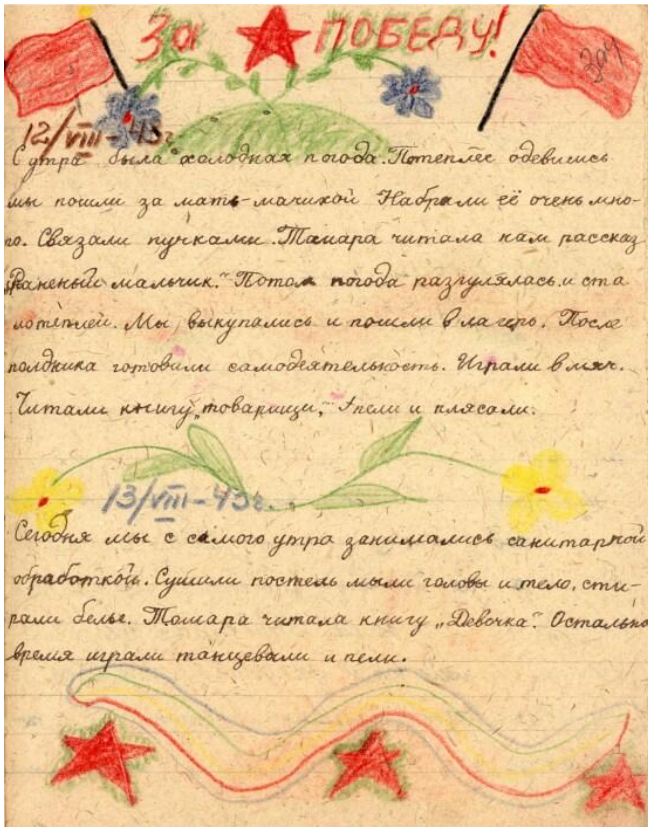 За ПОБЕДУ!
12/VIII-43г
С утра была холодная погода. Потеплее одевшись
мы пошли за мать-мачихой Набрали её очень мно-
го. Связали пучками. Тамара читала нам рассказ
„Раненый мальчик." Потом погода разгулялась и ста
ло теплей. Мы выкупались и пошли в лагерь. После
полдника готовили самодеятельность. Играли в мяч.
Читали книгу „товарищи," пели и плясали.
13/VIII-43г.
Сегодня мы с самого утра занимались санитарной
обработкой. Сушили постель мыли головы и тело, сти-
рали белье. Тамара читала книгу „Девочка". Остально
время играли танцевали и пели.